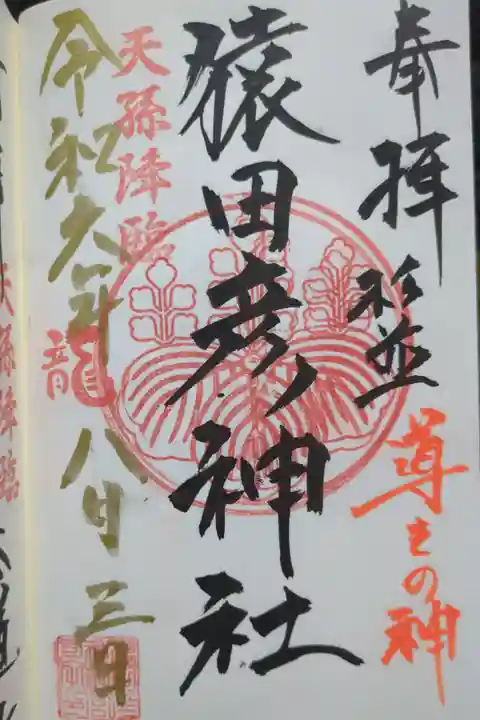 奉拝 杉並
導きの神
猿田彦ノ神社
天孫降臨
龍
令和六年 八月三日
天孫降臨